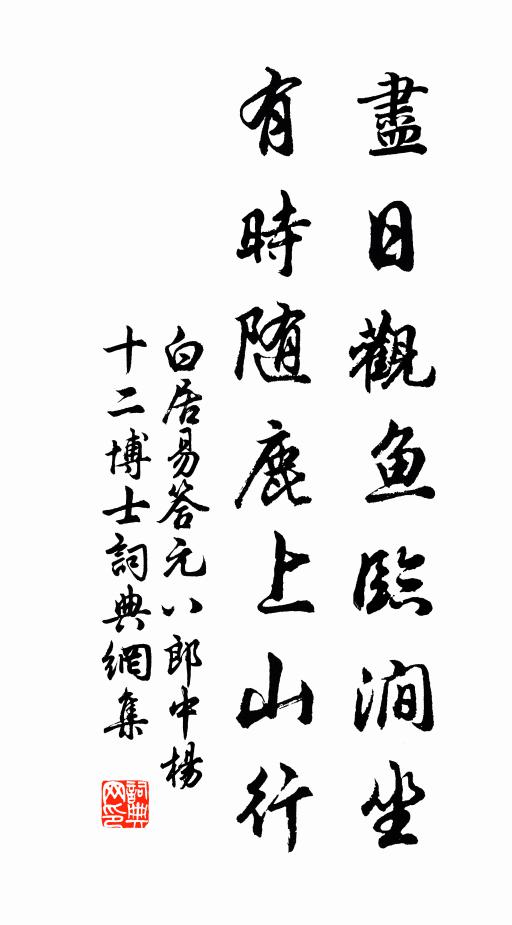 盡日觀魚臨澗坐
有時随鹿上山行
白居易答元八郎中楊
十二博士詞典網集
詞典网印